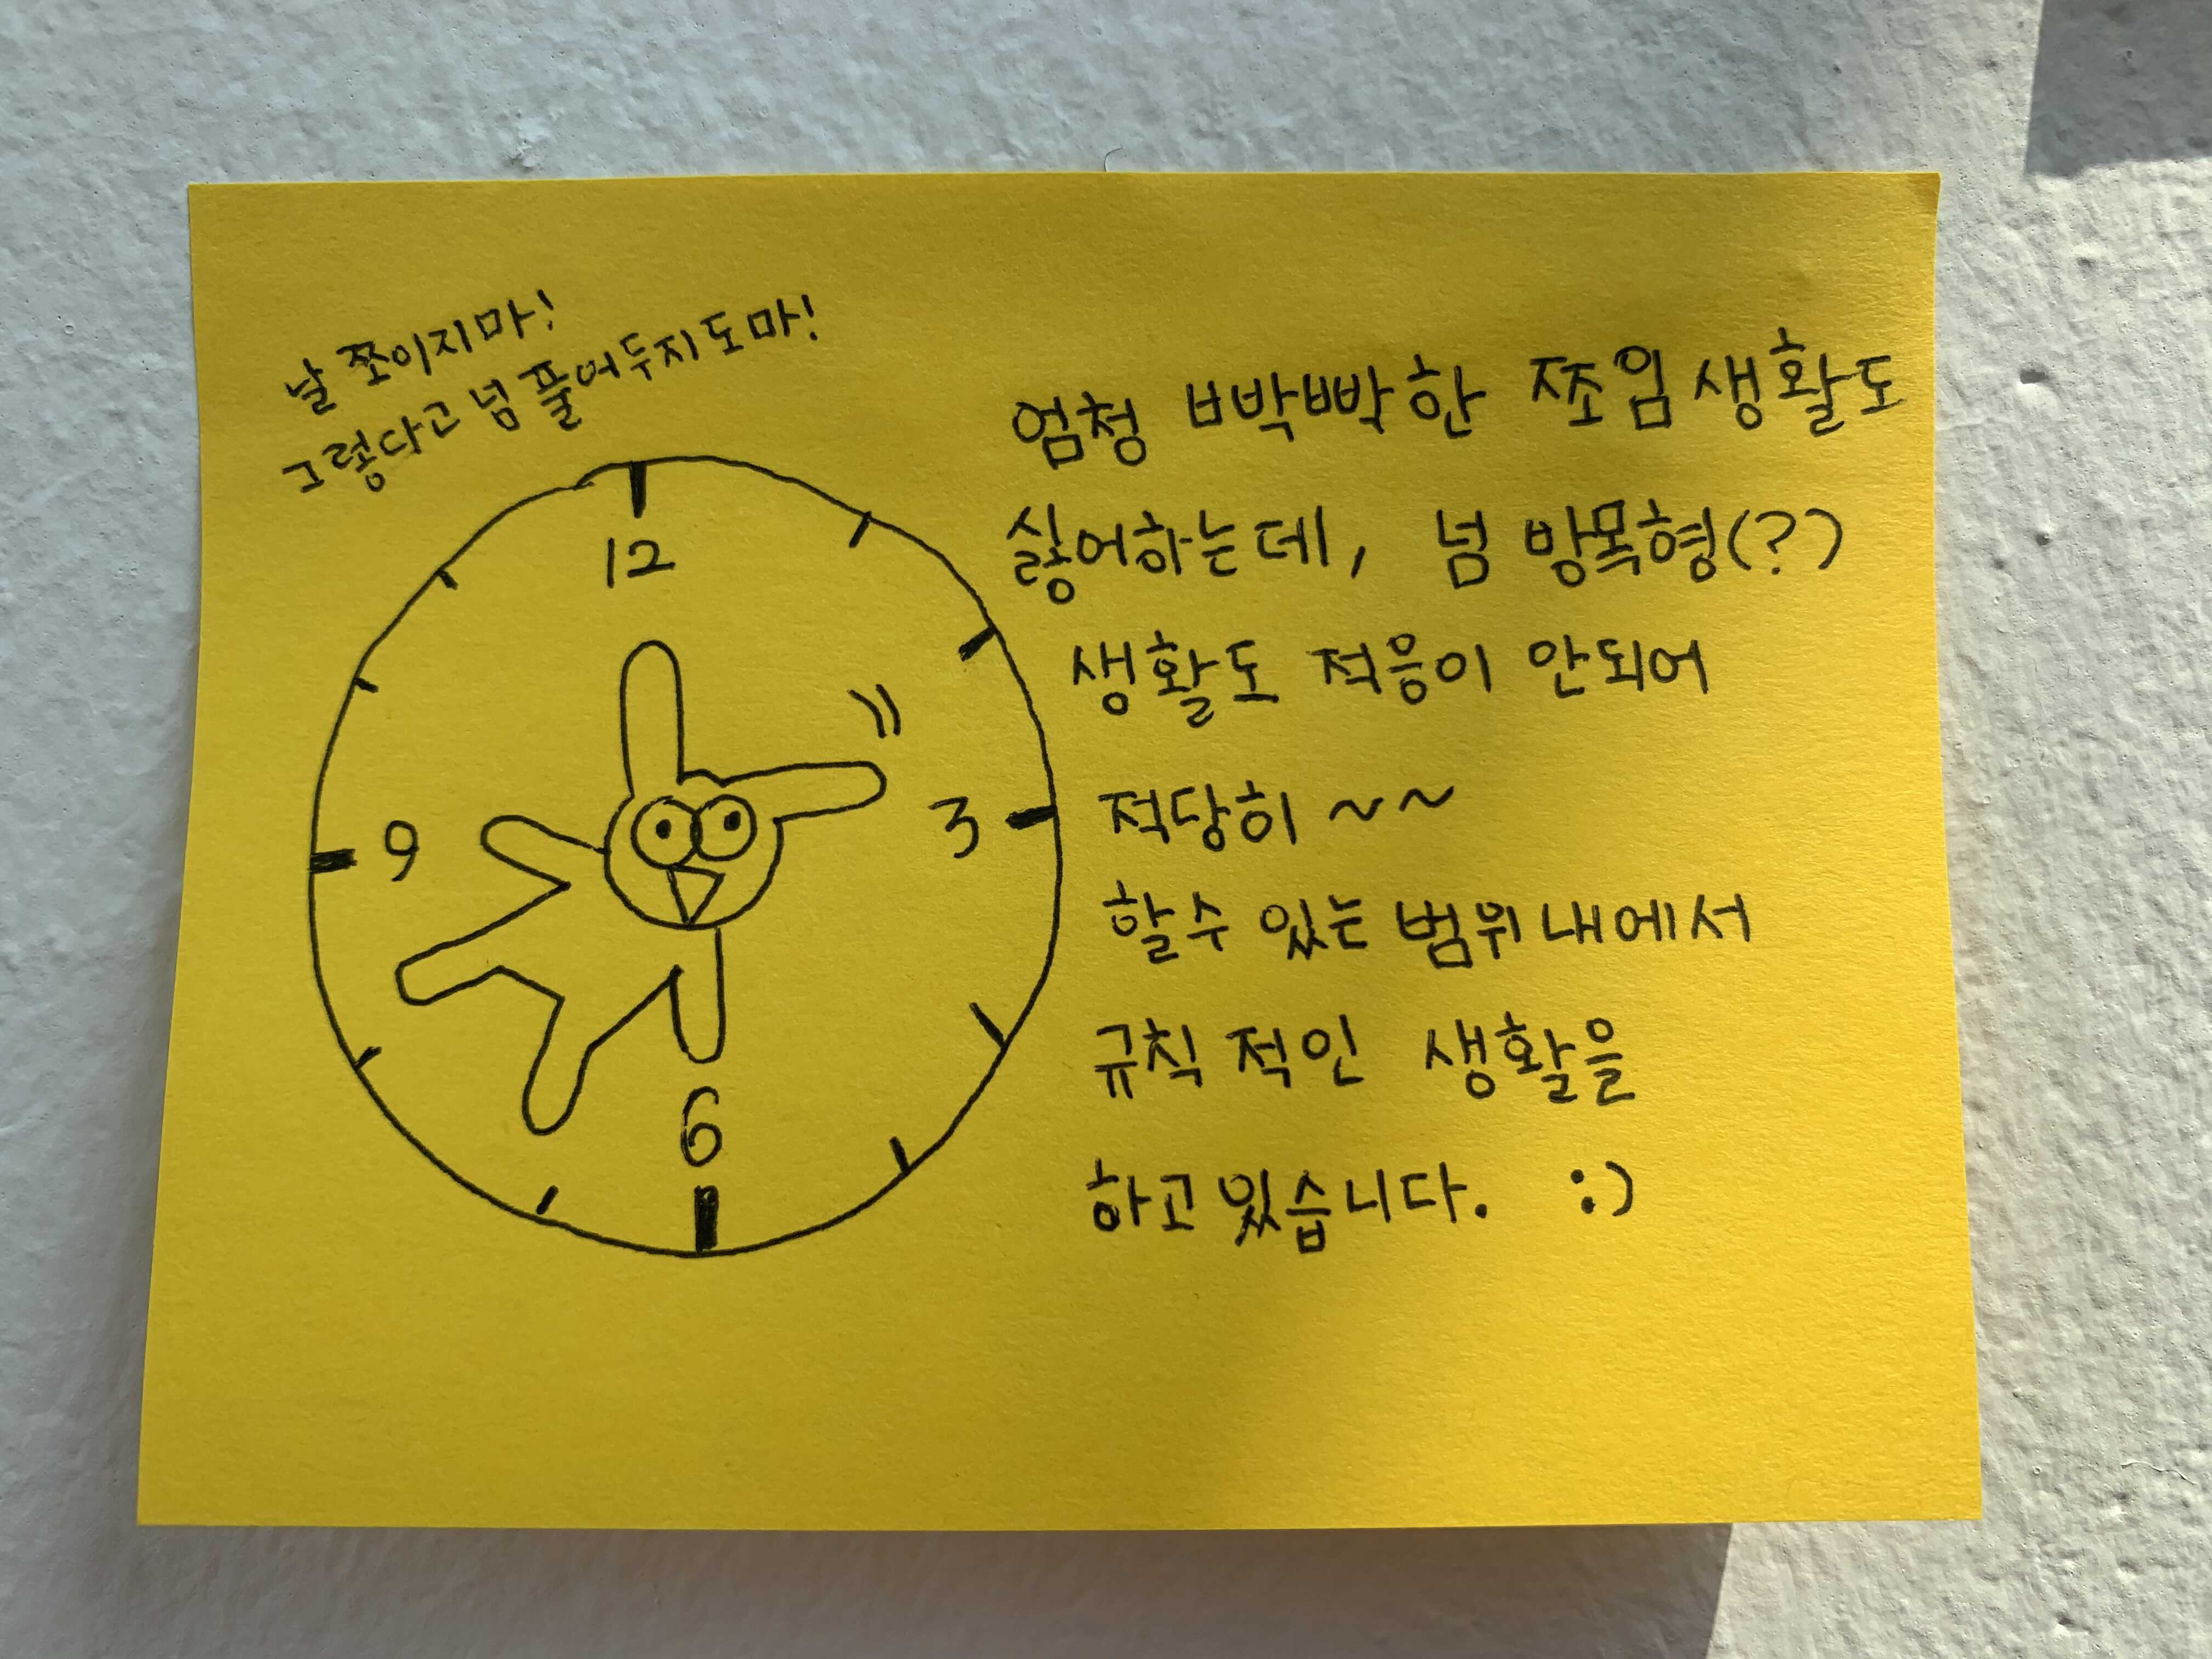 날 쪼이지마!
그렇다고 넘 풀어두지도마!
12
3
6
9
엄청 빡빡한 쪼임 생활도
싫어하는데, 넘 방목형(?)
생활도 적응이 안되어
적당히 ~~
할수 있는 범위내에서
규칙적인 생활을
하고있습니다. :)